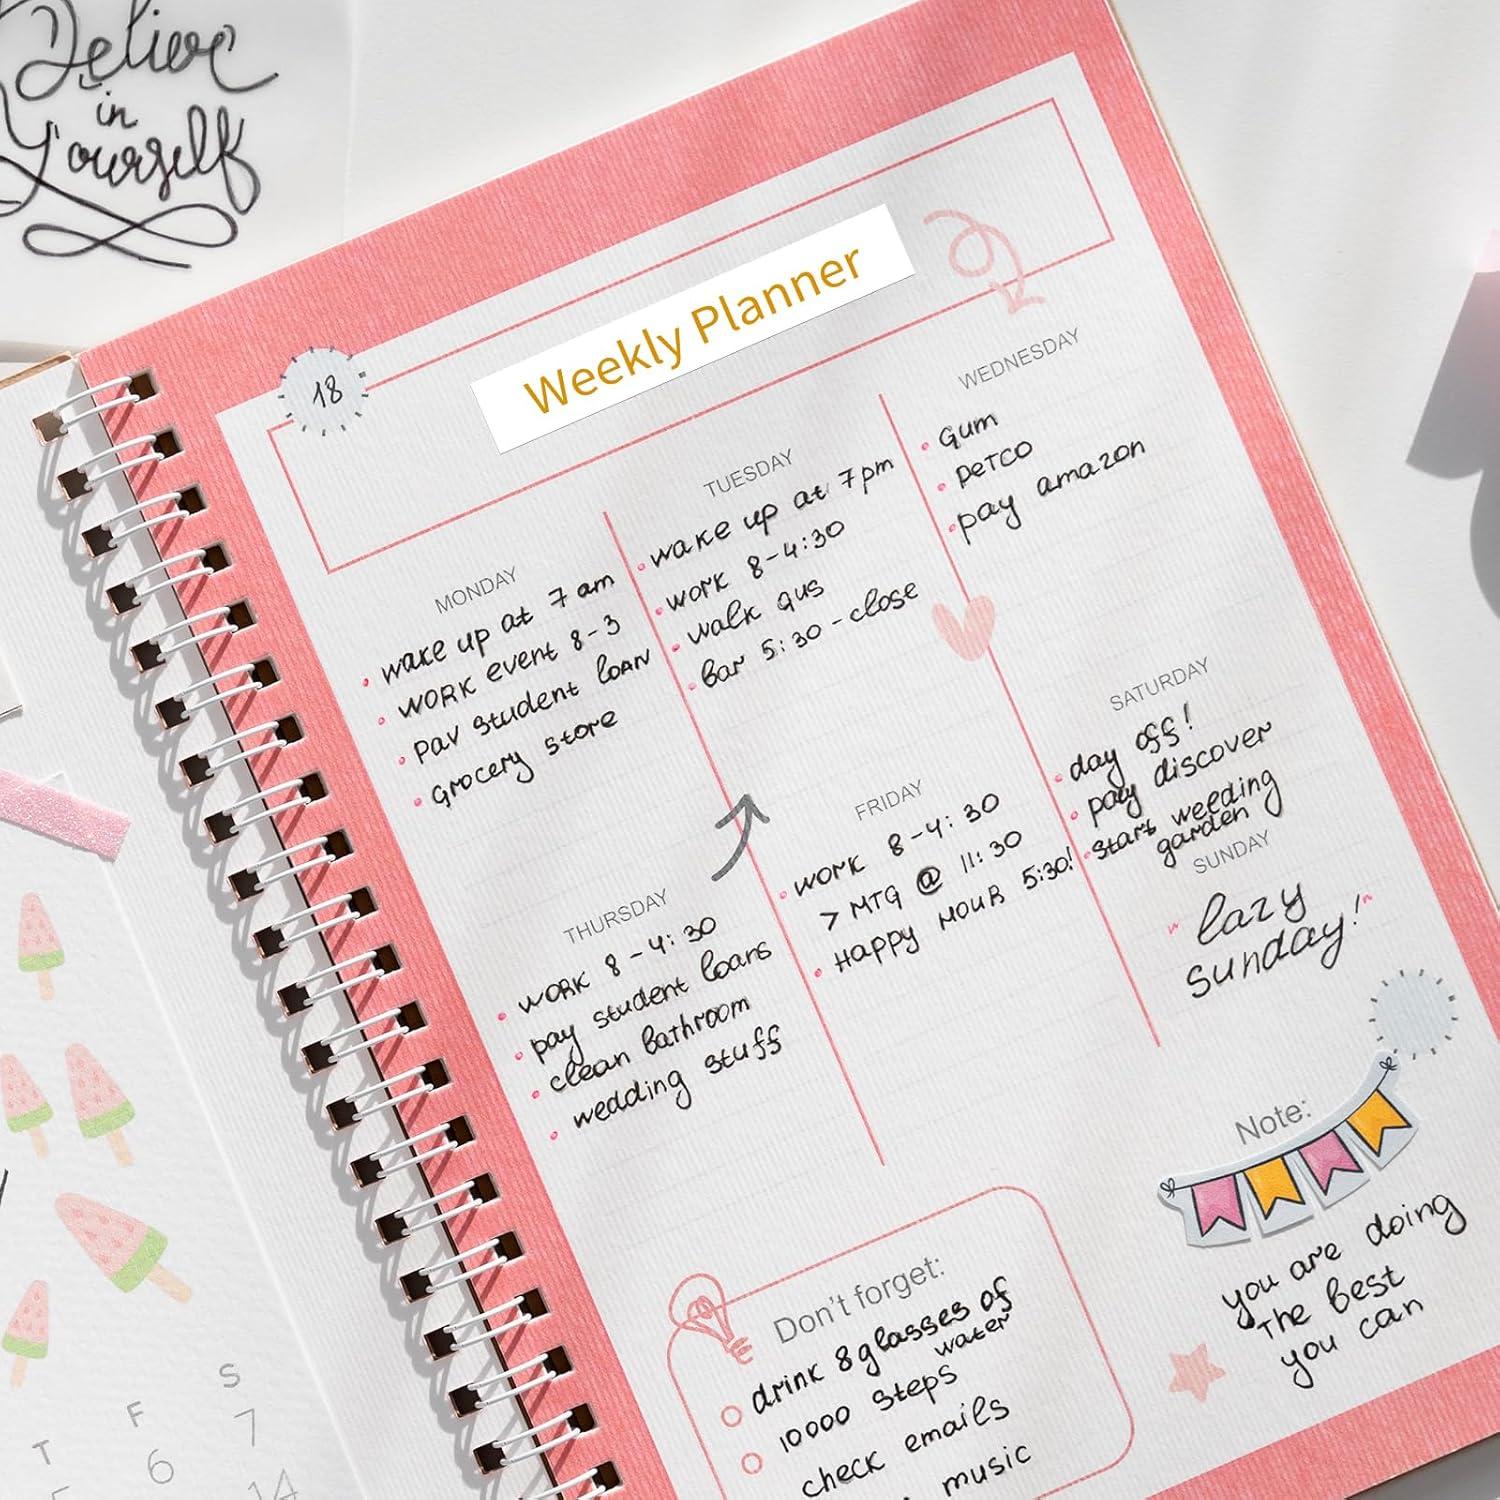 Believe
in
Yourself
18
Weekly Planner
MONDAY
wake up at 7 am
WORK event 8-3
pay student loan
grocery store
TUESDAY
wake up at 7pm
work 8-4:30
walk gus
bar 5:30-close
WEDNESDAY
Gum
PETCO
pay amazon
THURSDAY
WORK 8-4:30
pay student loans
clean bathroom
wedding stuff
FRIDAY
WORK 8-4:30
> MTG @ 11:30
HAPPY HOUR 5:30!
SATURDAY
day off!
pay discover
start weeding
garden
SUNDAY
lazy
sunday!
Don't forget:
drink 8 glasses of
water
10000 steps
check emails
music
Note:
you are doing
The best
you can
S
F 7
T 6 14